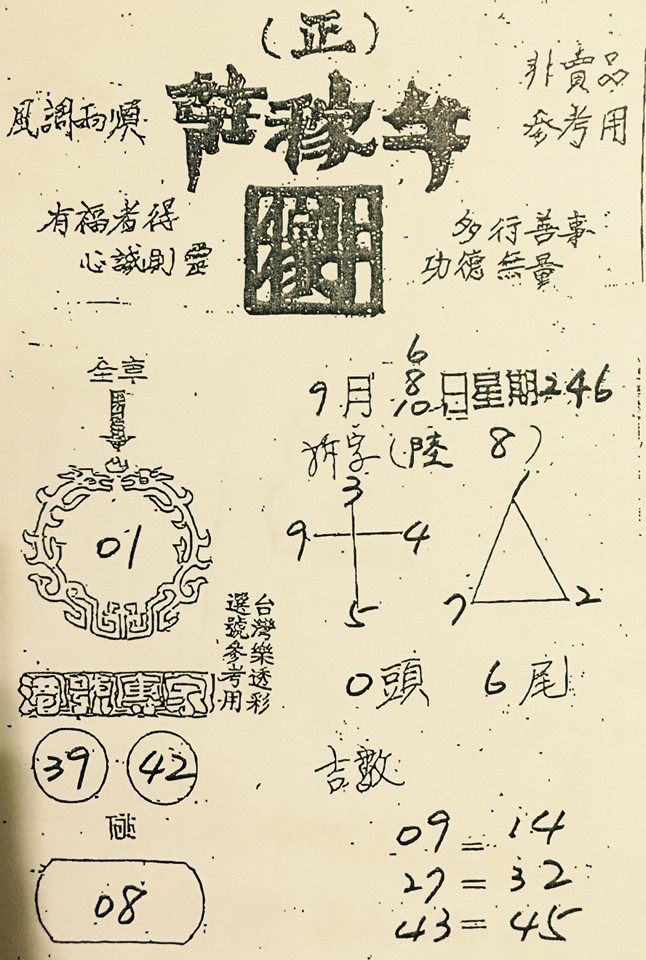 (正)
非賣品
參考用
風調雨順
莊稼牛
有福者得
心誠則靈
多行善事
功德無量
全車
01
9月6 8 10日星期246
拆字(陸 8)
3
9 4
5
1
7 2
台灣樂透彩
選號參考用
0頭 6尾
港號專家
39 42
吉數
碰
08
09=14
27=32
43=45